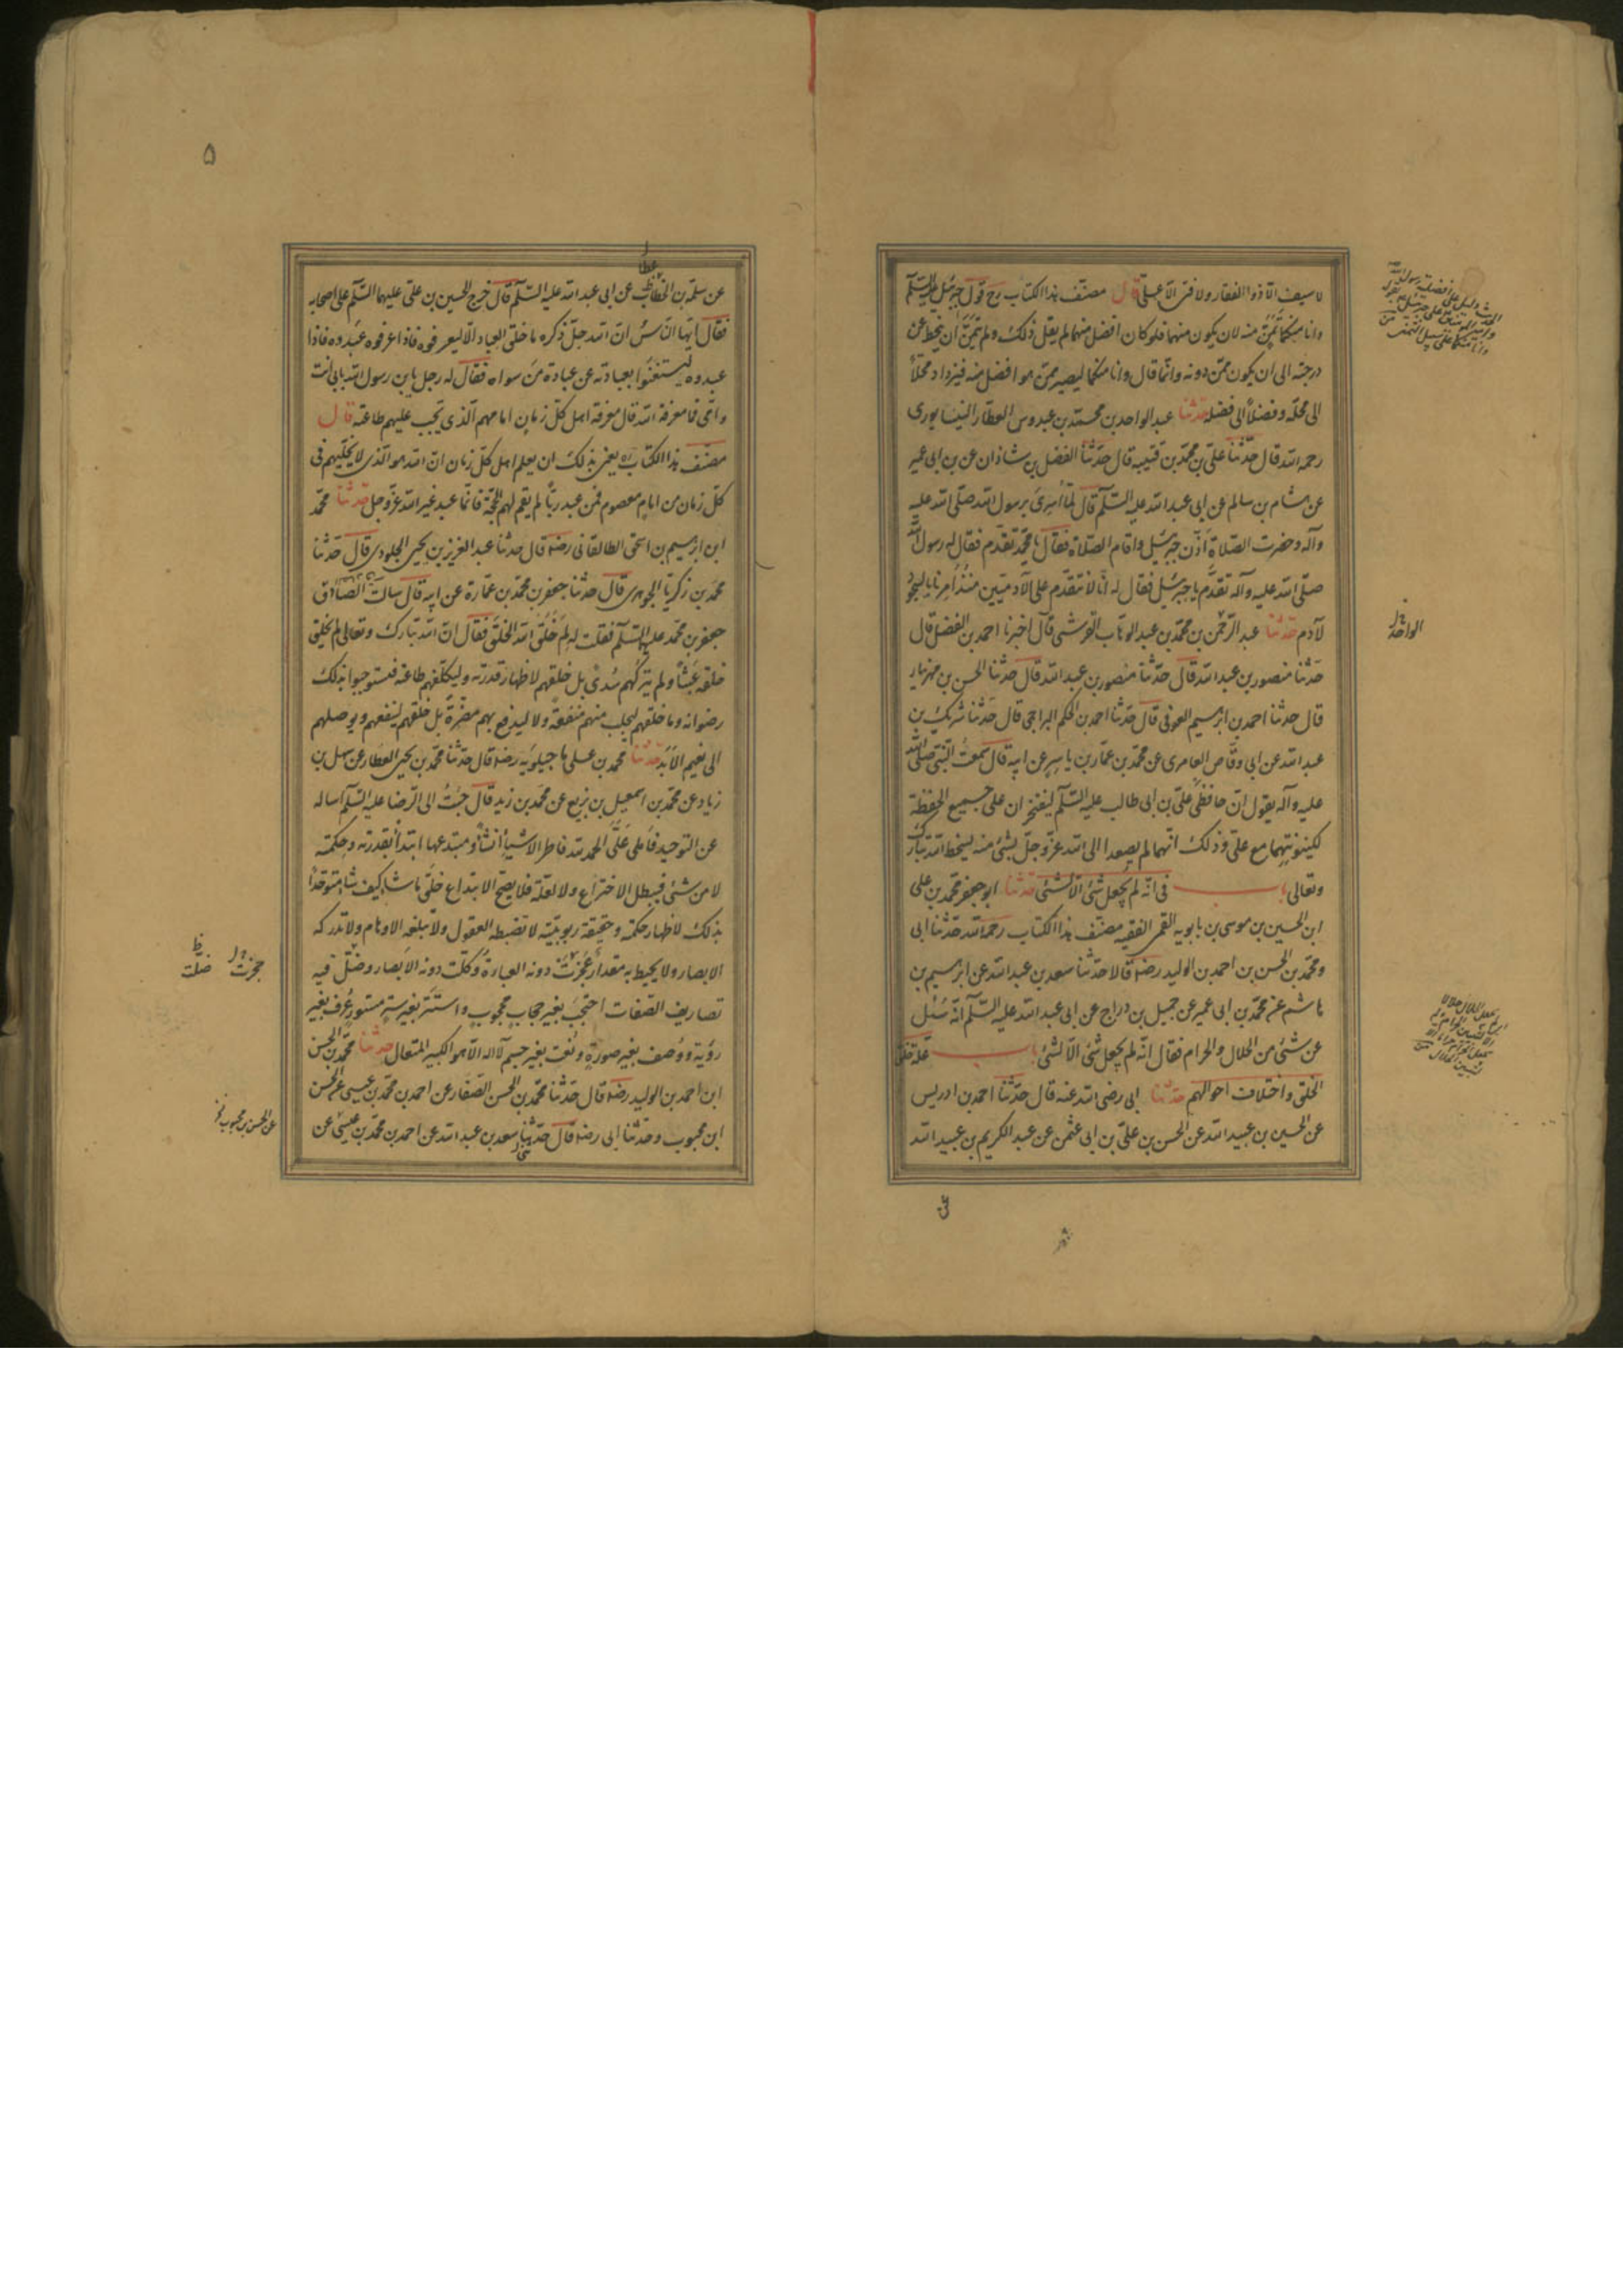 لا سيف الا ذو الفقار ولا فتى الا على قال مصنف هذا الكتاب رح قول جبرئيل عليه السلم
وانا منكما تمنى منه لان يكون منهما فلو كان افضل منهما لم يقل ذلك ولم يتمن ان ينحط عن
درجته الى ان يكون ممن دونه وانما قال وانا منكما ليصير ممن هو افضل منه فيزداد محلاً
الى محله وفضلاً الى فضله حدثنا عبد الواحد بن محمد بن عبدوس العطار النيسابورى
رحمه الله قال حدثنا على بن محمد بن قتيبه قال حدثنا الفضل بن شاذان عن بن ابى عمير
عن هشام بن سالم عن ابى عبد الله عليه السلم قال لما اُسرِىَ برسول الله صلى الله عليه
وآله وحضرت الصلاة اذّن جبرئيل واقام الصلاة فقال يا محمد تقدم فقال له رسول الله
صلى الله عليه وآله تقدم يا جبرئيل فقال له انا لا نتقدم على الآدميين منذ اُمرنا بالسجود
لآدم حدثنا عبد الرحمن بن محمد بن عبد الوهاب القرشى قال اخبرنا احمد بن الفضل قال
حدثنا منصور بن عبد الله قال حدثنا منصور بن عبد الله قال حدثنا الحسن بن مهزيار
قال حدثنا احمد بن ابرهيم العوفى قال حدثنا احمد بن الحكم البراجمى قال حدثنا شريك بن
عبد الله عن ابى وقاص العامرى عن محمد بن عمار بن ياسر عن ابيه قال سمعت النبى صلى الله
عليه وآله يقول ان حافظى على بن ابى طالب عليه السلم ليفتخران على جميع الحفظة
لكينونتهما مع على وذلك انهما لم يصعدا الى الله عز وجل بشئ منه ليسخط الله تبارك
وتعالى باب فى انه لم يجعل شئ الا لشئ حدثنا ابو جعفر محمد بن على
ابن الحسين بن موسى بن بابويه القمى الفقيه مصنف هذا الكتاب رحمه الله حدثنا ابى
ومحمد بن الحسن بن احمد بن الوليد رضه قالا حدثنا سعد بن عبد الله عن ابرهيم بن
هاشم عن محمد بن ابى عمير عن جميل بن دراج عن ابى عبد الله عليه السلم انه سُئل
عن شئ من الحلال والحرام فقال انه لم يجعل شئ الا لشئ باب علة خلق
الخلق واختلاف احوالهم حدثنا ابى رضى الله عنه قال حدثنا احمد بن ادريس
عن الحسين بن عبيد الله عن الحسن بن على بن ابى عثمن عن عبد الكريم بن عبيد الله
الواحد
عن
۵
عطا
عن سلمة بن الخطاب عن ابى عبد الله عليه السلم قال خرج الحسين بن على عليهما السلم على اصحابه
فقال ايها الناس ان الله جل ذكره ما خلق العباد الا ليعرفوه فاذا عرفوه عبدوه فاذا
عبدوه ليستغنوا بعبادته عن عبادة من سواه فقال له رجل يابن رسول الله بابى انت
وامى فما معرفة الله قال معرفة اهل كل زمان امامهم الذى تجب عليهم طاعته قال
مصنف هذا الكتاب ره يعنى بذلك ان يعلم اهل كل زمان ان الله هو الذى لا يخليهم فى
كل زمان من امام معصوم فمن عبد رباً لم يقم لهم الحجة فانما عبد غير الله عز وجل حدثنا محمد
ابن ابرهيم بن اسحق الطالقانى رضه قال حدثنا عبد العزيز بن يحيى الجلودى قال حدثنا
محمد بن زكريا الجوهرى قال حدثنا جعفر بن محمد بن عمارة عن ابيه قال سالت الصادق
جعفر بن محمد عليهما السلم فقلت له لم خلق الله الخلق فقال ان الله تبارك وتعالى لم يخلق
خلقه عبثاً ولم يتركهم سُدىً بل خلقهم لاظهار قدرته وليكلفهم طاعته فيستوجبوا بذلك
رضوانه وما خلقهم ليجلب منهم منفعة ولا ليدفع بهم مضرة بل خلقهم لينفعهم ويوصلهم
الى نعيم الابد حدثنا محمد بن على ماجيلويه رضه قال حدثنا محمد بن يحيى العطار عن سهل بن
زياد عن محمد بن اسمعيل بن بزيع عن محمد بن زيد قال جئت الى الرضا عليه السلم اساله
عن التوحيد فاملى علىّ الحمد لله فاطر الاشياء انشاءً ومبتدعها ابتداءً بقدرته وحكمته
لا من شئ فيبطل الاختراع ولا لعلة فلا يصح الابتداع خلق ما شاء كيف شاء متوحداً
بذلك لاظهار حكمته وحقيقة ربوبيته لا تضبطه العقول ولا تبلغه الاوهام ولا تدركه
الابصار ولا يحيط به مقدار عجزت دونه العبارة وكلت دونه الابصار وضل فيه
تصاريف الصفات احتجب بغير حجاب محجوب واستتر بغير ستر مستور عُرف بغير
رؤية ووُصف بغير صورة ونُعت بغير جسم لا اله الا هو الكبير المتعال حدثنا محمد بن الحسن
ابن احمد بن الوليد رضه قال حدثنا محمد بن الحسن الصفار عن احمد بن محمد بن عيسى عن الحسن
ابن محبوب وحدثنا ابى رضه قال حدثنا سعد بن عبد الله عن احمد بن محمد بن عيسى عن
ضلت
عن الحسن بن محبوب